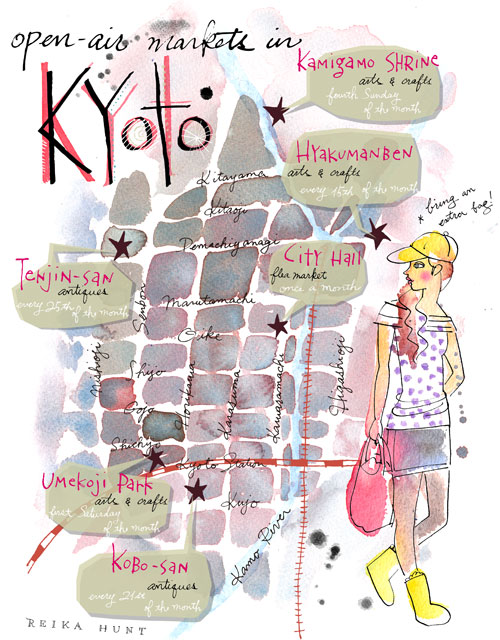 open-air markets in
Kyoto
Kamigamo Shrine
arts & crafts
fourth Sunday
of the month
Hyakumanben
arts & crafts
every 15th of the month
* bring an
extra bag!
Kitayama
Kitaoji
Demachiyanagi
City Hall
flea market
once a month
Tenjin-san
antiques
every 25th of the month
Senbon
Marutamachi
Oike
Nishioji
Shijo
Horikawa
Karasuma
Kawaramachi
Higashioji
Gojo
Shichijo
Kyoto Station
Umekoji Park
arts & crafts
first Saturday
of the month
Kujo
Kamo River
Kobo-san
antiques
every 21st
of the month
REIKA HUNT